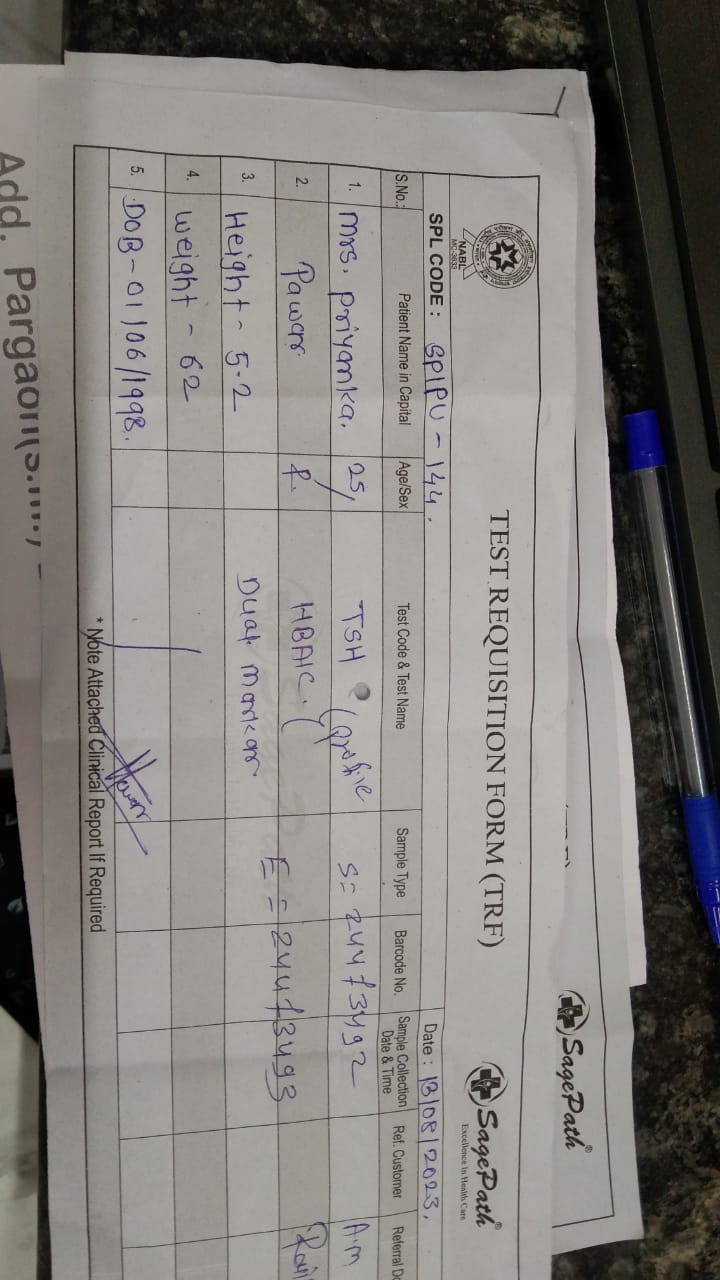 SagePath®
NABL
MC-3633
TEST REQUISITION FORM (TRF)
SagePath®
Excellence In Health Care
SPL CODE : SPIPU - 144.
Date : 13/08/2023.
S.No.: Patient Name in Capital Age/Sex Test Code & Test Name Sample Type Barcode No. Sample Collection Date & Time Ref. Customer Referral D
1. Mrs. Priyanka. 25/ TSH (profile S= 24473492 A.M
2. Pawar F. HBA1C. E = 24473493
3. Height - 5.2 Dual Markar
4. weight - 62
5. DOB - 01/06/1998.
* Note Attached Clinical Report If Required
Add. Pargaon